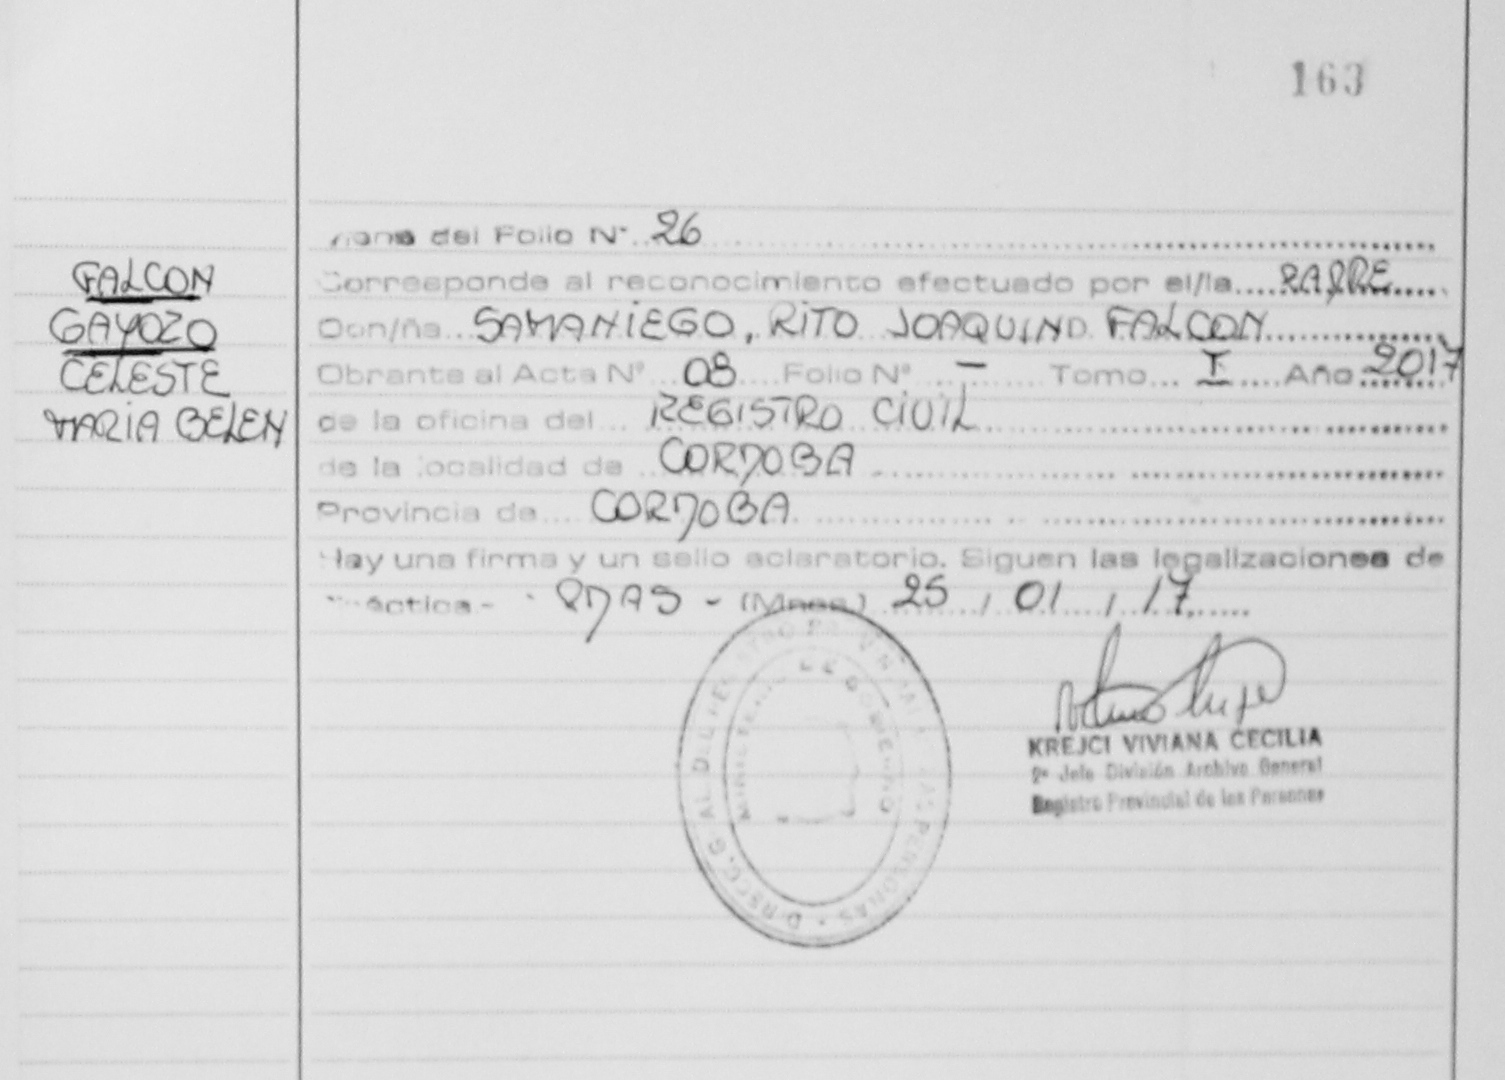 163
del Folio Nº 26
FALCON
GAYOZO
CELESTE
MARIA BELEN
Corresponde al reconocimiento efectuado por el/la PADRE
Don/ña SAMANIEGO, RITO JOAQUIND FALCON
Obrante al Acta Nº 08 Folio Nº — Tomo I Año 2017
de la oficina del REGISTRO CIVIL
de la localidad de CORDOBA
Provincia de CORDOBA
Hay una firma y un sello aclaratorio. Siguen las legalizaciones de
PDAS - (Mnes) 25 / 01 / 17
DE GOBIERNO
PERSONAS
KREJCI VIVIANA CECILIA
2º Jefe División Archivo General
Registro Provincial de las Personas